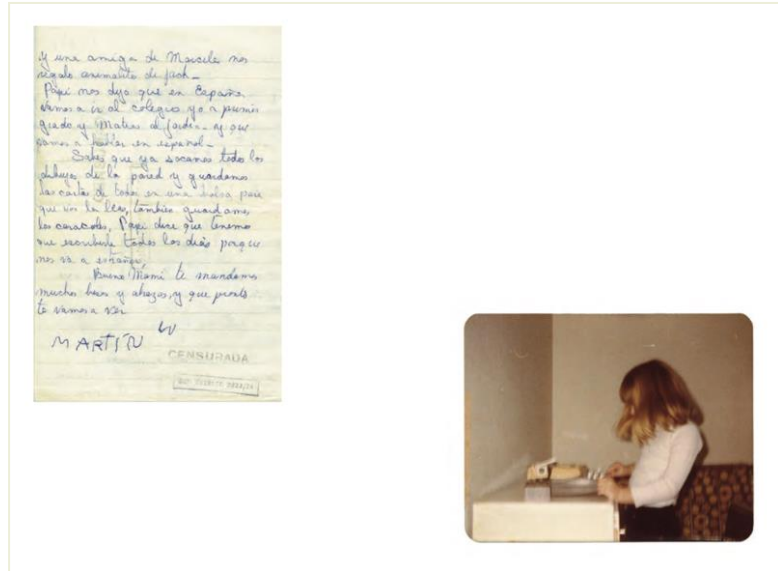 y una amiga de Marcela nos
regalo animalito de
Papi nos dijo que en España
vamos a ir al colegio yo a primer
grado y Matias al jardin - y que
vamos a hablar en español -
Sabes que ya sacamos todos los
dibujos de la pared y guardamos
las cartas de todos en una bolsa para
que vos las leas, tambien guardamos
los caracoles, Papi dice que tenemos
que escribirte todos los dias porque
nos va a extrañar,
Bueno Mami te mandamos
muchos besos y abrazos, y que pronto
te vamos a ver
MARTÍN
CENSURADA